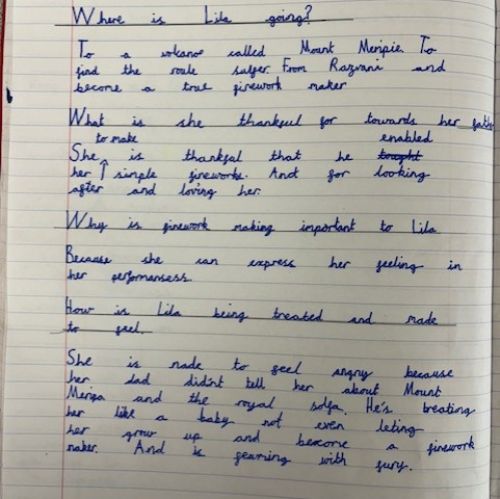 Where is Lila going?
To a volcano called Mount Meripie. To
find the roule sulfer. From Razvani and
become a true firework maker
What is she thankful for towards her fath
to make enabled
She is thankful that he tought
her simple fireworks. And for looking
after and loving her.
Why is firework making important to Lila
Because she can express her feeling in
her performansess.
How is Lila being treated and made
to feel.
She is made to feel angry because
her dad didn't tell her about Mount
Meriga and the royal solfa. He's treating
her like a baby not even leting
her grow up and become a firework
maker. And is feaming with fury.